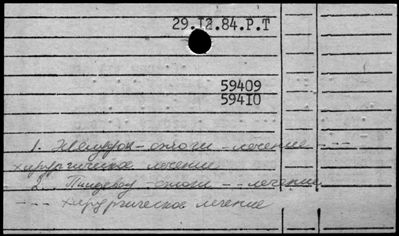 29.I2.84.P.T
59409
594I0
1. Желудок - ожоги - лечение - - -
хирургическое лечение
2. Пищевод - ожоги - - лечение
- - - хирургическое лечение